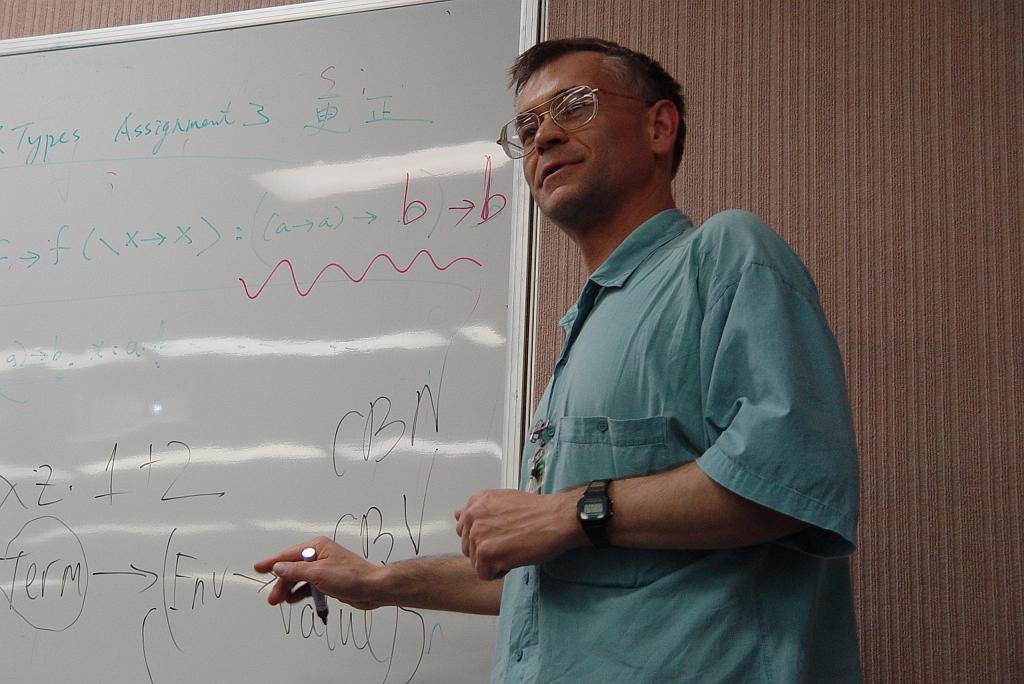 Types Assignment 3 更正
→ f (\x → x) : ((a → a) → b) → b
a) → b. x : a
CBN
xz. 1+2
CBV
Term → (Env →
Value)